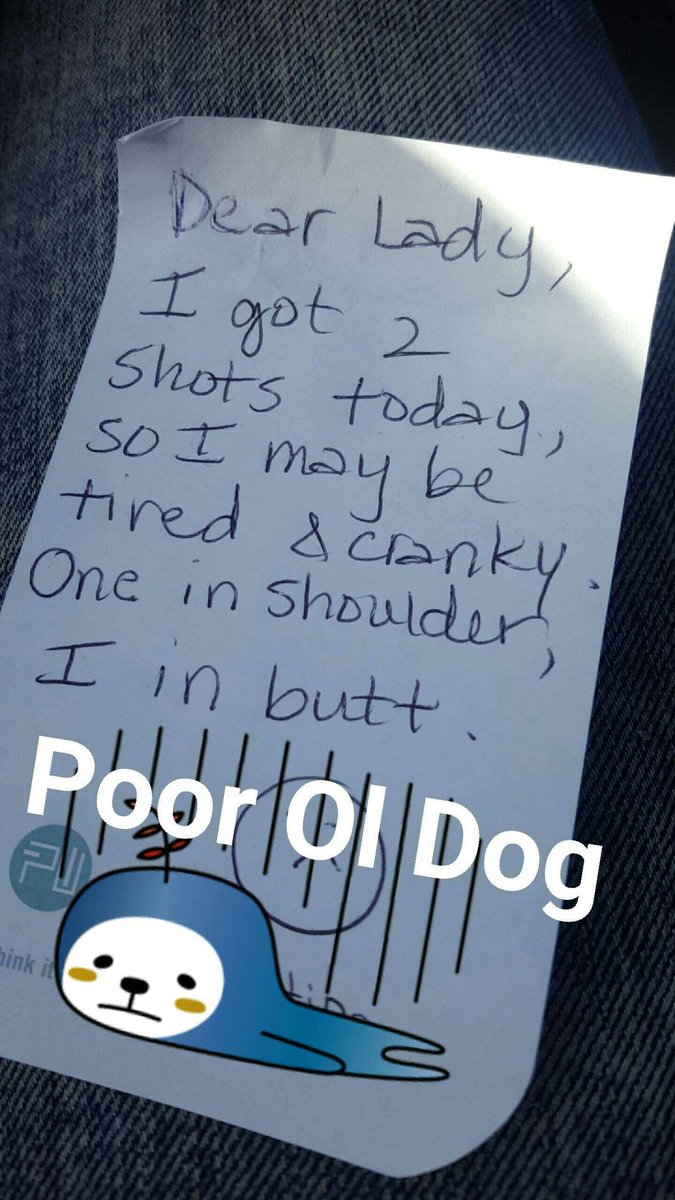 Dear Lady,
I got 2
shots today,
so I may be
tired & cranky.
One in shoulder,
I in butt.
Poor Ol Dog
hink it